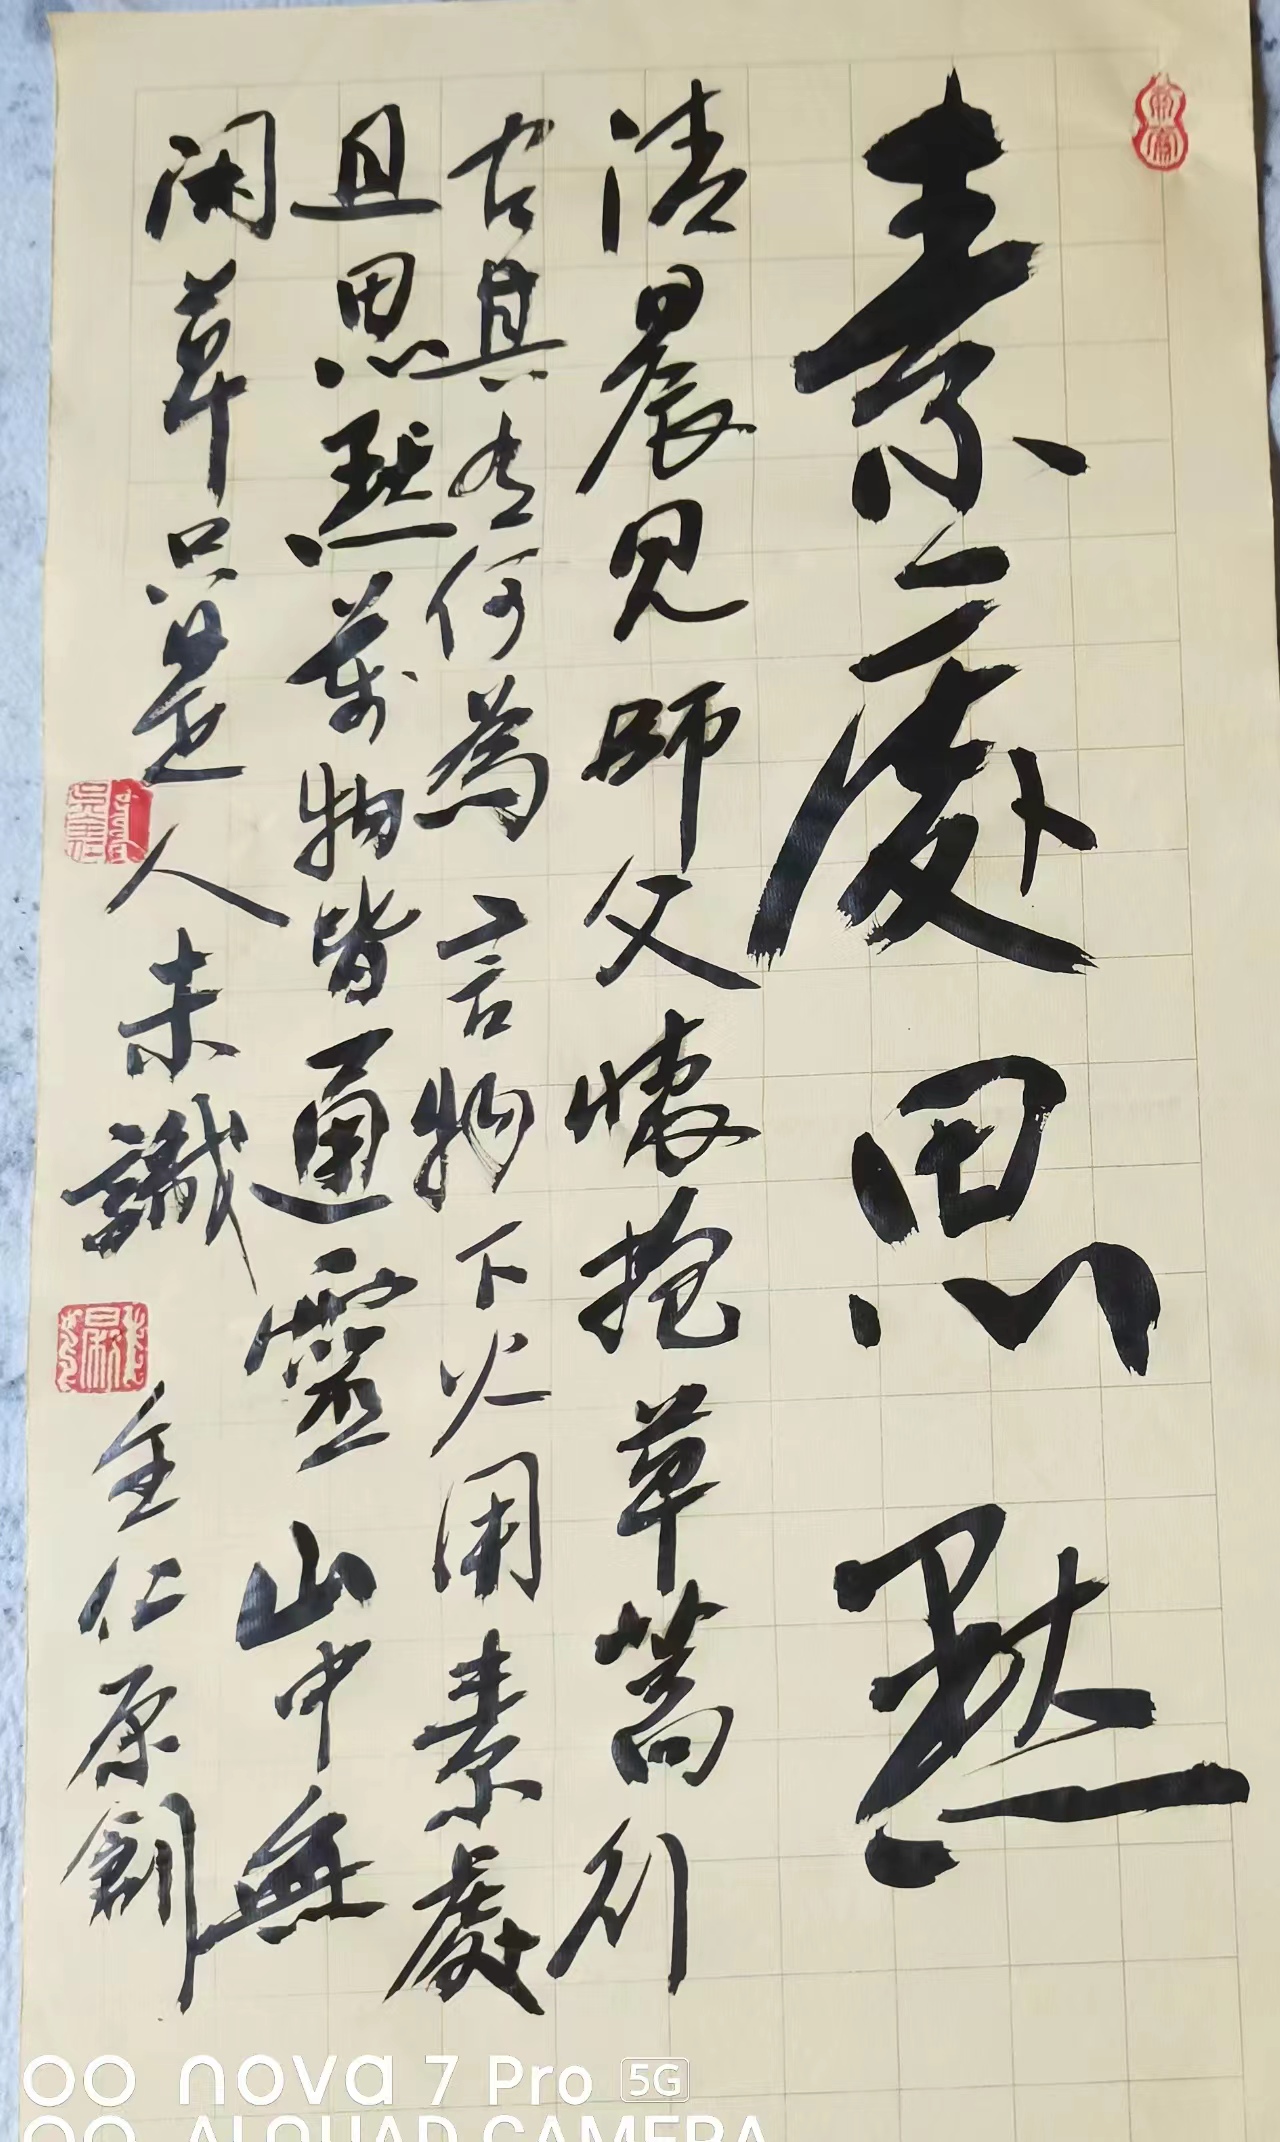 素處思默
清晨見師父懷抱草蒿創
古具有何為言物下火用素處
且思默萬物皆通靈山中無
閑草只是人未識
主仁原創
nova 7 Pro 5G
AI QUAD CAMERA